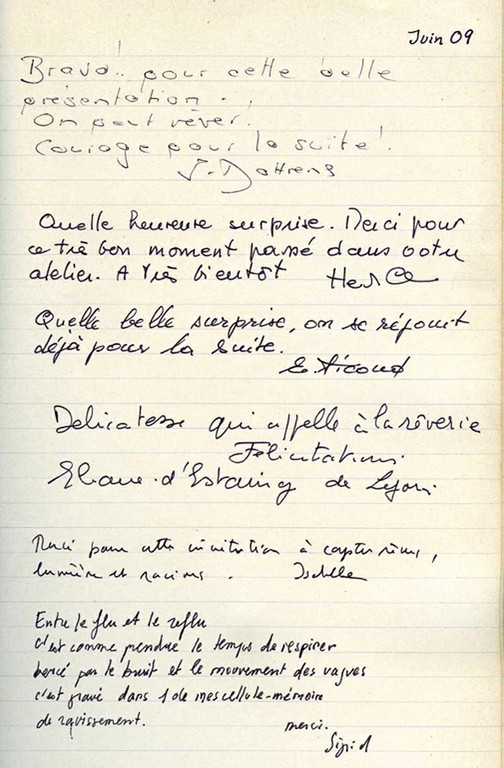 Juin 09
Bravo!! pour cette belle
présentation..
On peut rêver.
Courage pour la suite!
J. Dottrens
Quelle heureuse surprise. Merci pour
ce très bon moment passé dans votre
atelier. A très bientôt
Quelle belle surprise, on se réjouit
déjà pour la suite.
Délicatesse qui appelle à la rêverie
Félicitations.
Eliane d'Estaing de Lyon.
Merci pour cette invitation à capter
lumière et racines. Isabelle
Entre le flu et le reflu
c'est comme prendre le temps de respirer
bercé par le bruit et le mouvement des vagues
c'est gravé dans 1 de mes cellule-mémoire
de ravissement.
merci.
Sigrid